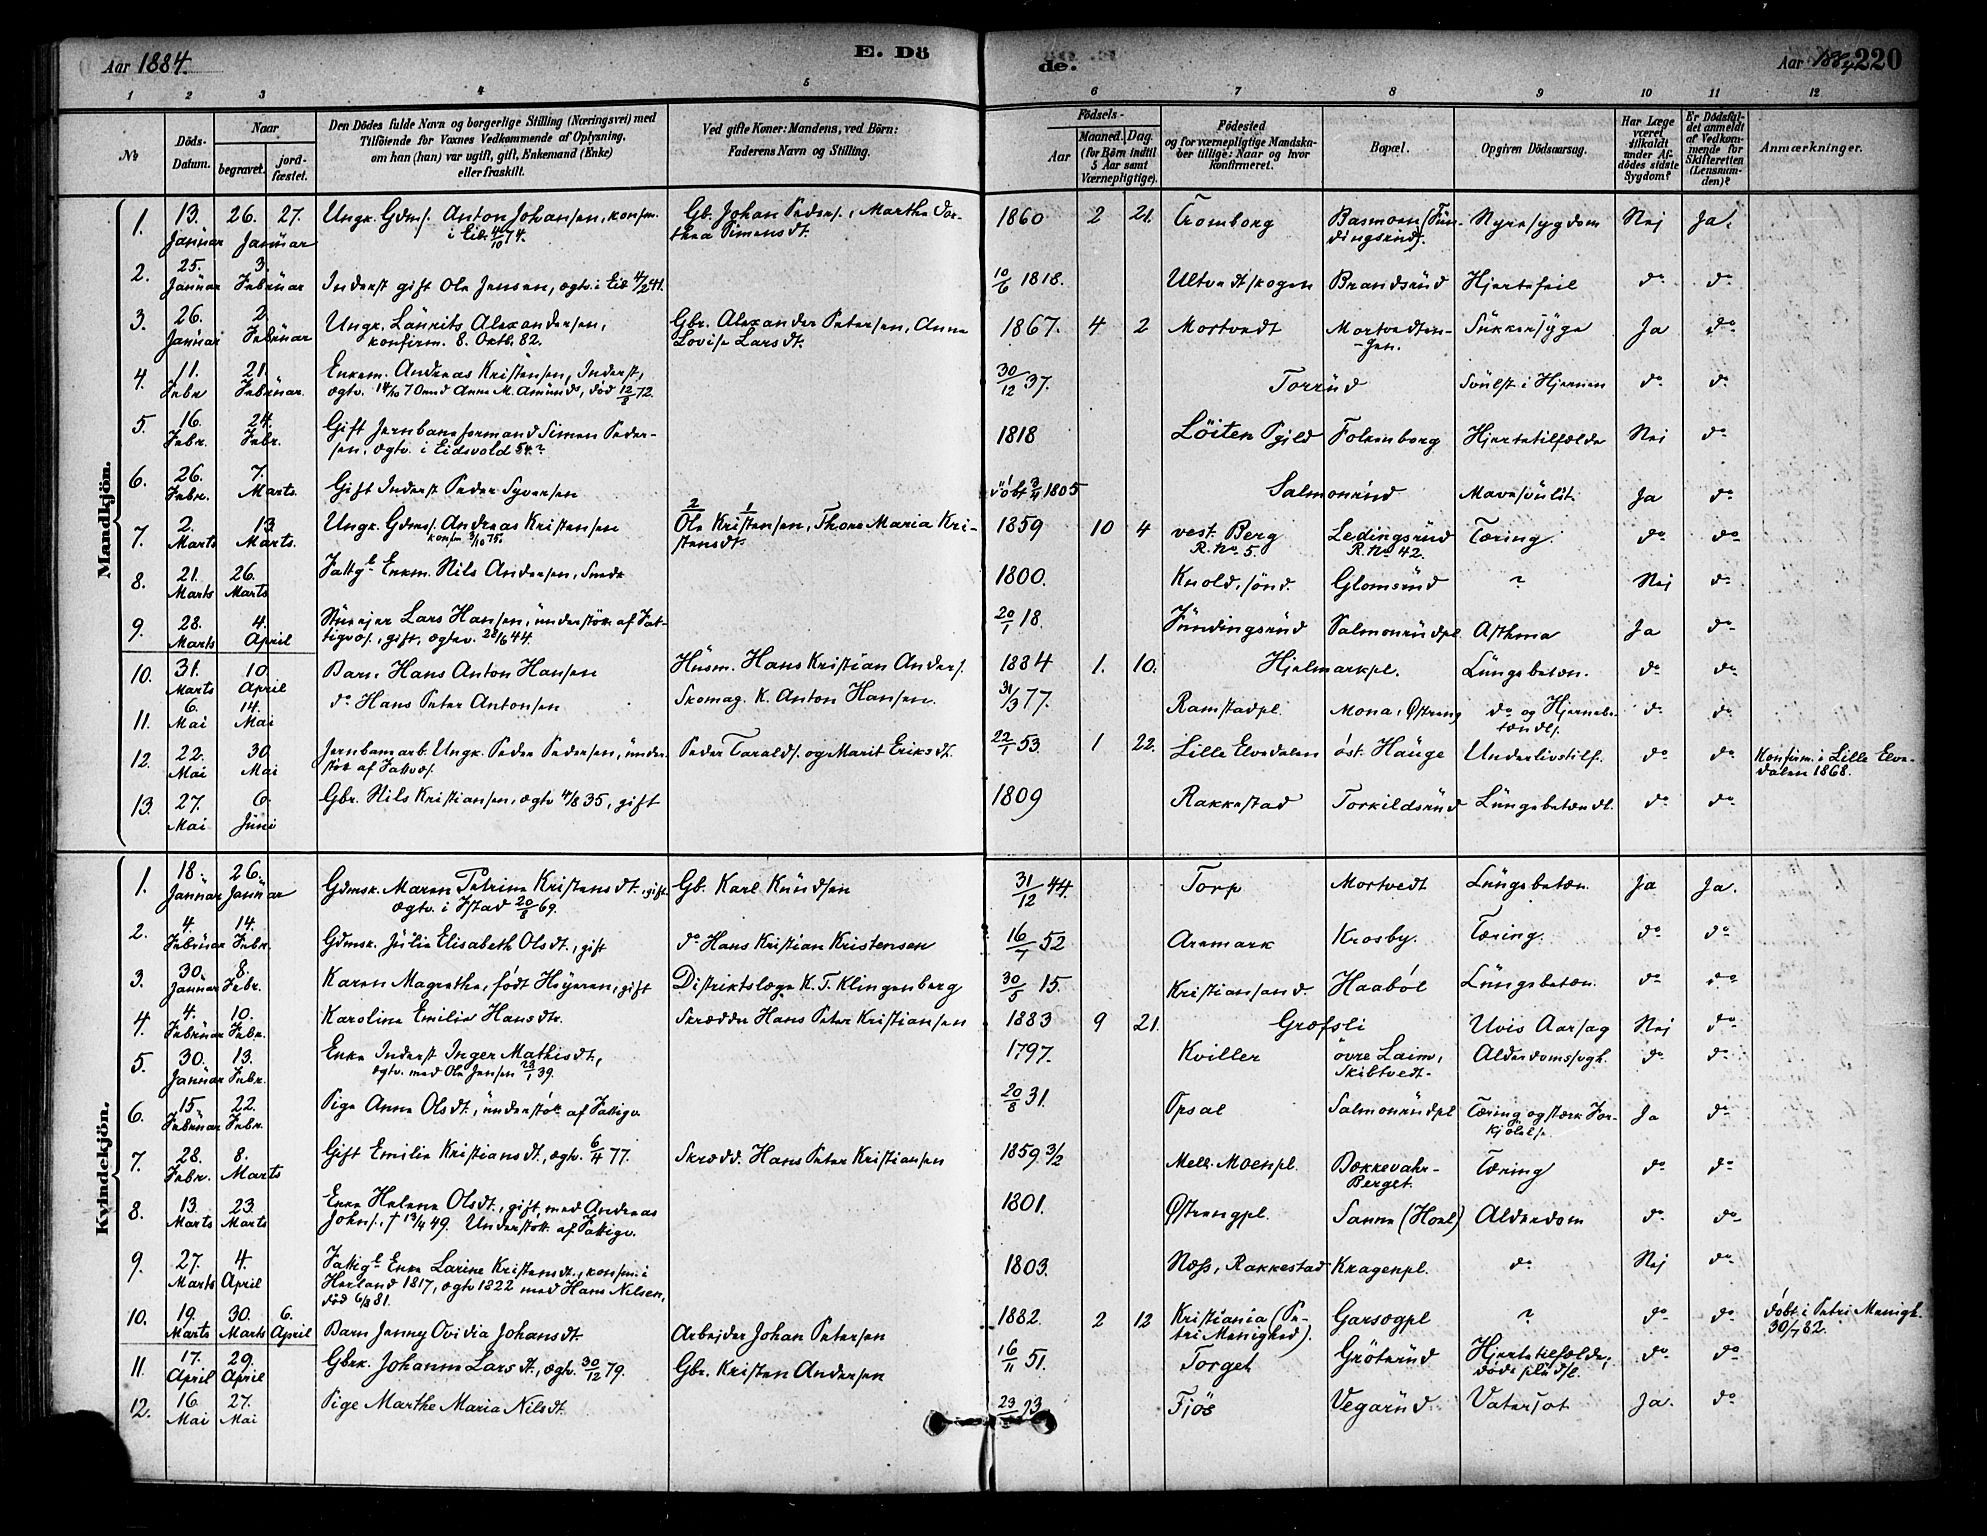 Aar 1884.
E. Dö
de.
Aar 1884
220
1 2 3 4 5 6 7 8 9 10 11 12
No
Döds-Datum.
Naar
begravet.
jord-fæstet.
Den Dödes fulde Navn og borgerlige Stilling (Næringsvei) med
Tilföiende for Voxnes Vedkommende af Oplysning,
om han (hun) var ugift, gift, Enkemand (Enke)
eller fraskilt.
Ved gifte Koner: Mandens, ved Börn:
Faderens Navn og Stilling.
Födsels-
Aar
Maaned. Dag.
(for Börn indtil
5 Aar samt
Værnepligtige).
Födested
og for værnepligtige Mandska-
ber tillige: Naar og hvor
konfirmeret.
Bopæl.
Opgiven Dödsaarsag.
Har Læge
været
tilkaldt
under Af-
dödes sidste
Sygdom?
Er Dödsfal-
det anmeldt
af Vedkom-
mende for
Skifteretten
(Lensman-
den)?
Anmærkninger.
Mandkjön.
1. 13. Januar 26. Januar 27. Ungk. Gdms. Anton Johansen, konfm. Gb. Johan Peders., Marthe Dor- 1860 2 21. Tromborg Basmoen (Fün- Nyresygdom Nej Ja.
i Eid. 4/10 74. thea Simensdt. dingsrud).
2. 25. Januar 3. Februar Inderst gift Ole Jensen, ægtv. i Eid 4/2 41. 10/6 1818. Ultvedtskogen Brandsrud Hjertefeil do do
3. 26. Januar 2. Februar Ungk. Laurits Alexandersen, Gbr. Alexander Petersen, Anne 1867. 4 2 Mortvedt Mortvedten- Sukkersyge Ja do
konfirm. 8. Oktb. 82. Lovise Larsdt. gen.
4. 11. Febr 21. Februar. Enkem. Andreas Kristensen, Inderst, 30/12 37. Torrud Svulst i Hjernen do do
ægtv. 14/10 70 med Anne M. Amunds, död 12/8 72.
5. 16. Febr. 24. Febr. Gift Jernbaneformand Simen Peder- 1818 Löiten Pgild Folkenborg Hjertetilfælde Nej do
sen, ægtv. i Eidsvold 54?
6. 26. Febr. 7. Marts. Gift Inderst Peder Syversen döbt 3/4 1805 Salmonrud Mavesvulst. Ja do
7. 2. Marts 13 Marts. Ungk. Gdms. Andreas Kristensen Ole Kristensen, Thore Maria Kri- 1859 10 4 vest. Berg Ledingsrud Tæring. do do
konfm 3/10 75. stensdt. R. No. 5. R. No 42.
8. 21. Marts 26. Marts Fattigl. Enkm. Nils Andersen, Smed 1800. Knold, sönd. Glomsrud ? Nej do
9. 28. Marts 4. April Stueejer Lars Hansen, understöt. af Fat- 20/1 18. Fündingsrud Salmonrudpl. Asthma Ja do
tigvæs., gift, ægtv. 28/6 44.
10. 31. Marts 10. April Barn Hans Anton Hansen Husm. Hans Kristian Anders. 1884 1. 10. Hjelmarkpl. Lungebetæn. do do
11. 6. Mai 14. Mai do Hans Peter Antonsen Skomag. K. Anton Hansen. 31/3 77. Ramstadpl. Mona, Østreng do og Hjernebe- do do
tændls.
12. 22. Mai 30. Mai Jernbanearb. Ungk. Peder Pedersen, under- Peder Taralds. og Marit Eriksdt. 22/1 53. 1 22. Lille Elvedalen öst. Hauge Underlivstilf. do do Konfirm. i Lille Elve-
stöt af Fattvæs. dalen 1868.
13. 27. Mai 6. Juni Gbr. Nils Kristiansen, ægtv 4/8 35, gift 1809 Rakkestad Torkildsrud Lungebetændl. do do
Kvindekjön.
1. 18. Januar 26. Januar Gdmsk. Maren Petrine Kristensdt., gift Gb. Karl Knudsen 31/12 44. Torp Mortvedt Lungebetæn. Ja Ja.
ægtv. i Ystad 20/8 69.
2. 4. Februar 14. Febr. Gdmsk. Julie Elisabeth Olsdt., gift do Hans Kristian Kristensen 16/1 52 Aremark Krosby. Tæring. do do
3. 30. Januar 8. Febr. Karen Magrethe, födt Heyeren, gift Distriktslæge K. T. Klingenberg 30/5 15. Kristiansand. Haaböl Lungebetæn. do do
4. 4. Februar 10. Febr. Karoline Emilie Hansdtr. Skrædder Hans Peter Kristiansen 1883 9 21. Grøfsli Uvis Aarsag Nej do
5. 30. Januar 13. Febr. Enke Inderst Inger Mathisdt, 1797. Kviller övre Laim, Alderdomssvgh. do do
ægtv. med Ole Jensen 23/1 39. Skibtvedt.
6. 15. Februar 22. Febr. Pige Anne Olsdt., understöt af Fattigv. 20/8 31. Opsal Salmonrudpl Tæring og stærk For- Ja do
kjölels.
7. 28. Febr. 8. Marts Gift Emilie Kristiansdt., ægtv. 6/4 77. Skrædd. Hans Peter Kristiansen 1859 3/2 Mell. Moenpl. Bækkevahr- Tæring do do
Berget.
8. 13. Marts 23. Marts Enke Helene Olsdt., gift med Andreas 1801. Østrengpl. Sanne (Hoel) Alderdom do do
Johns. † 13/4 49. Understött af Fattigv.
9. 27. Marts 4. April Fattigl. Enke Larine Kristensdt., konfm. i 1803. Næss, Rakkestad Kragenpl. do Nej do
Herland 1817, ægtv 1822 med Hans Nilsen,
död 6/3 81.
10. 19. Marts 30. Marts 6. April Barn Jenny Ovidia Johansdt. Arbejder Johan Petersen 1882. 2 12 Kristiania (Pe- Garsogpl ? do do döbt i Petri Menigh.
tri Menighed). 30/4 82.
11. 17. April 29. April Gbrk. Johanne Larsdt, ægtv. 30/12 79. Gbr. Kristen Andersen 16/11 51. Torget Gröterud Hjertetilfælde; do do
döde pludsl.
12. 16 Mai 27. Mai Pige Marthe Maria Nilsdt. 23/ 23 Fjös Vegarud Vatersot Ja. do